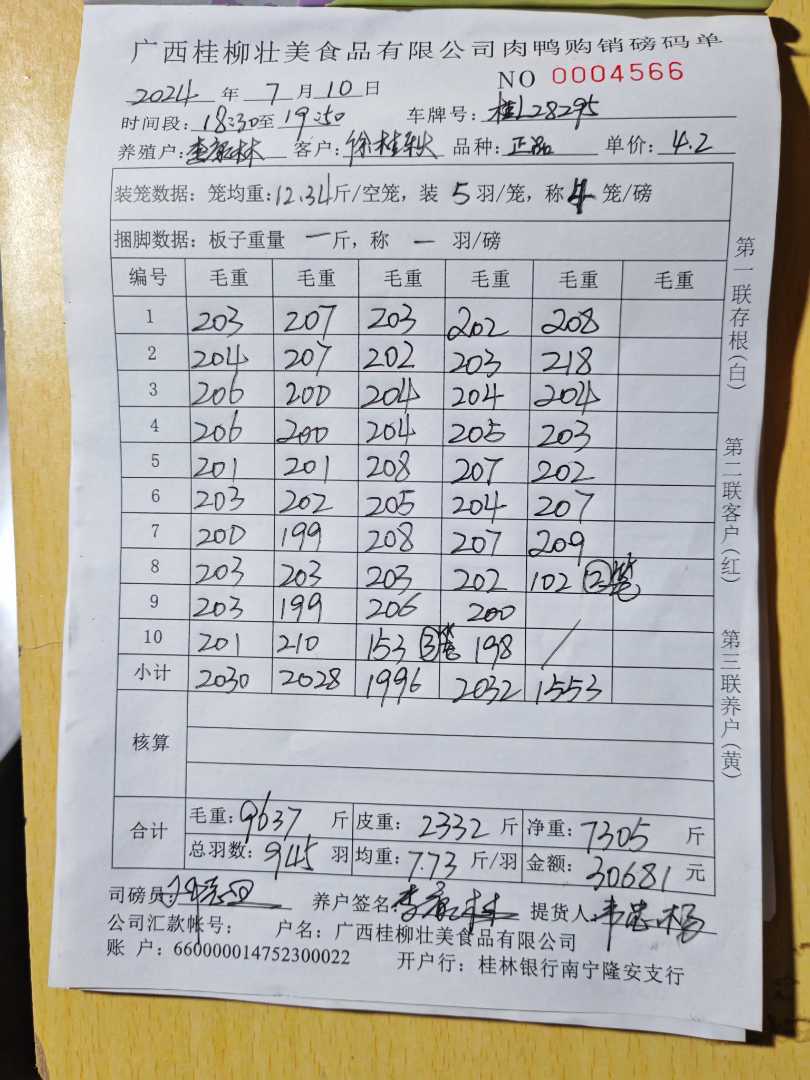 广西桂柳壮美食品有限公司肉鸭购销磅码单
NO 0004566
2024 年 7 月 10 日
时间段: 18:30 至 19:50 车牌号: 桂L28295
养殖户: 客户: 徐桂 品种: 正品 单价: 4.2
装笼数据: 笼均重: 12.34 斤/空笼, 装 5 羽/笼, 称 4 笼/磅
捆脚数据: 板子重量 一 斤, 称 一 羽/磅
编号 毛重 毛重 毛重 毛重 毛重 毛重
1 203 207 203 202 208
2 204 207 202 203 218
3 206 200 204 204 204
4 206 200 204 205 203
5 201 201 208 207 202
6 203 202 205 204 207
7 200 199 208 207 209
8 203 203 203 202 102 ②笼
9 203 199 206 200
10 201 210 153 ③笼 198 /
小计 2030 2028 1996 2032 1553
核算
合计 毛重: 9637 斤 皮重: 2332 斤 净重: 7305 斤
总羽数: 945 羽 均重: 7.73 斤/羽 金额: 30681 元
司磅员 养户签名: 提货人:
公司汇款帐号: 户名: 广西桂柳壮美食品有限公司
账 户: 660000014752300022 开户行: 桂林银行南宁隆安支行
第一联存根(白) 第二联客户(红) 第三联养户(黄)